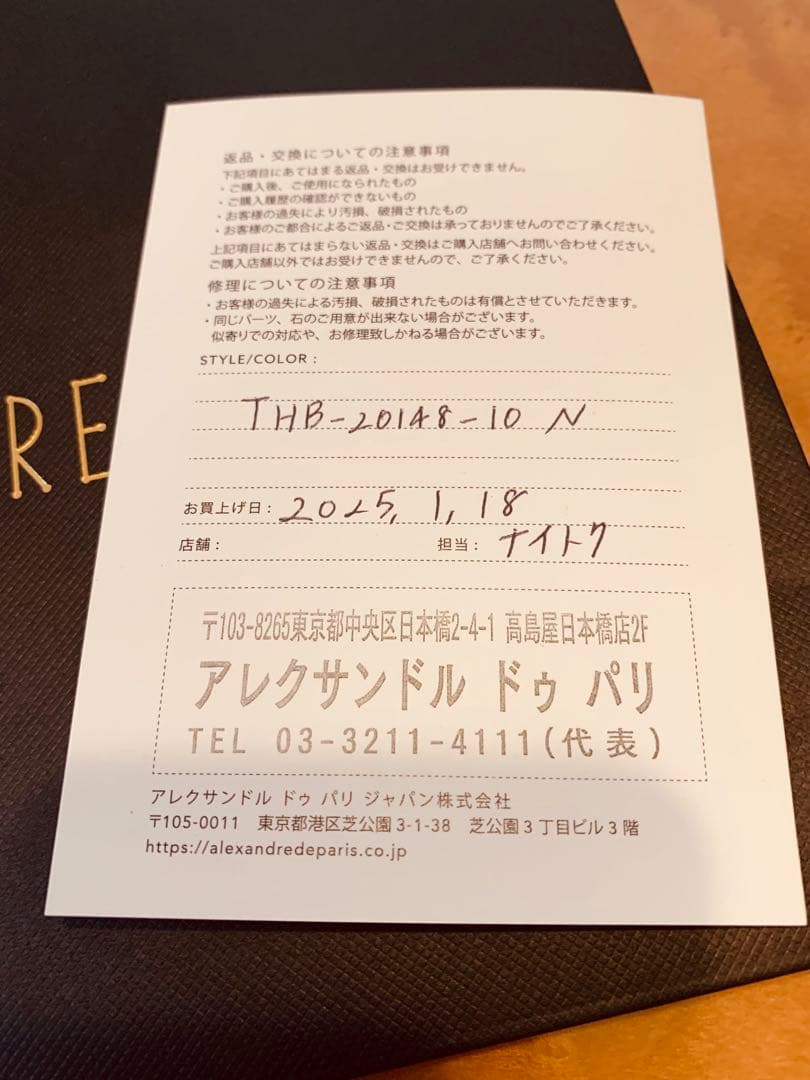 RE
返品・交換についての注意事項
下記項目にあてはまる返品・交換はお受けできません。
・ご購入後、ご使用になられたもの
・ご購入履歴の確認ができないもの
・お客様の過失により汚損、破損されたもの
・お客様のご都合によるご返品・ご交換は承っておりませんのでご了承ください。
上記項目にあてはまらない返品・交換はご購入店舗へお問い合わせください。
ご購入店舗以外ではお受けできませんので、ご了承ください。
修理についての注意事項
・お客様の過失による汚損、破損されたものは有償とさせていただきます。
・同じパーツ、石のご用意が出来ない場合がございます。
似寄りでの対応や、お修理致しかねる場合がございます。
STYLE/COLOR：
THB-20148-10 N
お買上げ日：2025, 1, 18
店舗： 担当：ナイトウ
〒103-8265東京都中央区日本橋2-4-1 高島屋日本橋店2F
アレクサンドル ドゥ パリ
TEL 03-3211-4111(代表)
アレクサンドル ドゥ パリ ジャパン株式会社
〒105-0011 東京都港区芝公園3-1-38 芝公園3丁目ビル3階
https://alexandredeparis.co.jp